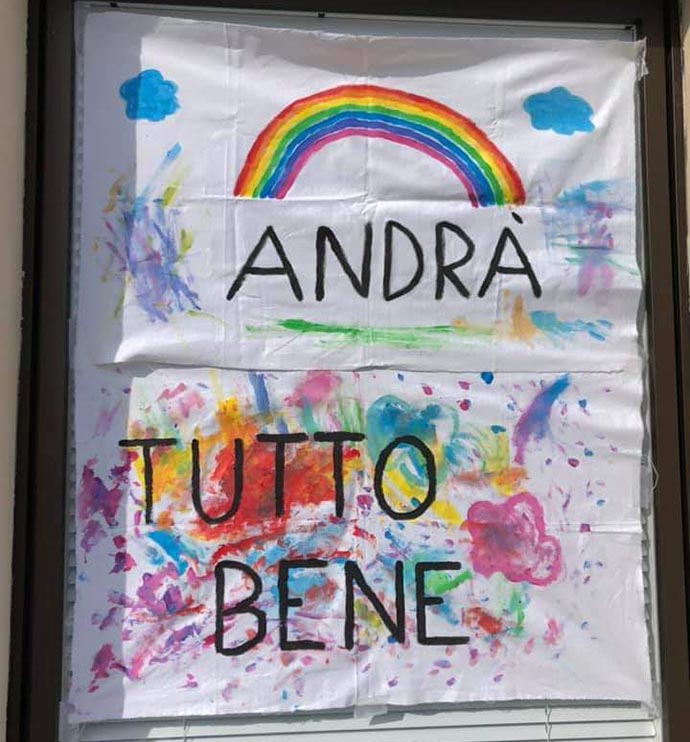 ANDRÀ
TUTTO
BENE